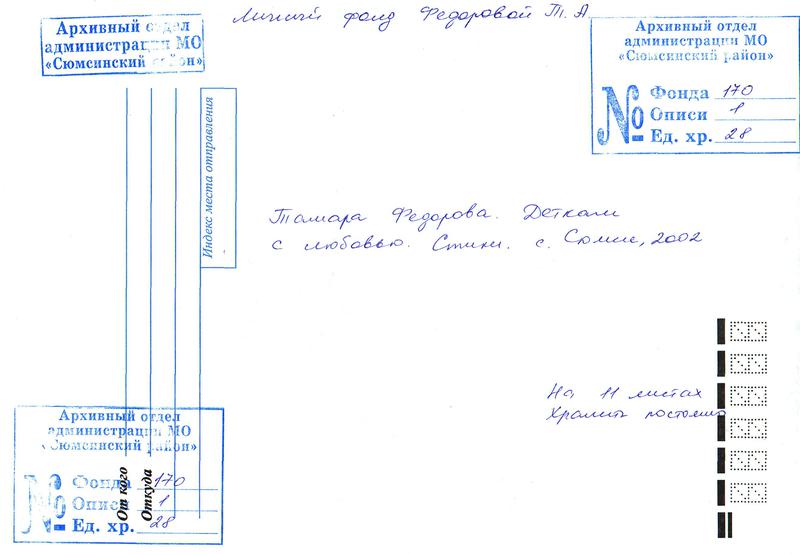 Личный фонд Федоровой Т. А
Архивный отдел
администрации МО
«Сюмсинский район»
Архивный отдел
администрации МО
«Сюмсинский район»
№
Фонда 170
Описи 1
Ед. хр. 28
Индекс места отправления
Тамара Федорова. Деткам
с любовью. Стихи. с. Сюмси, 2002
На 11 листах
Хранить постоянно
Архивный отдел
администрации МО
«Сюмсинский район»
№
Фонда 170
Описи 1
Ед. хр. 28
От кого
Откуда